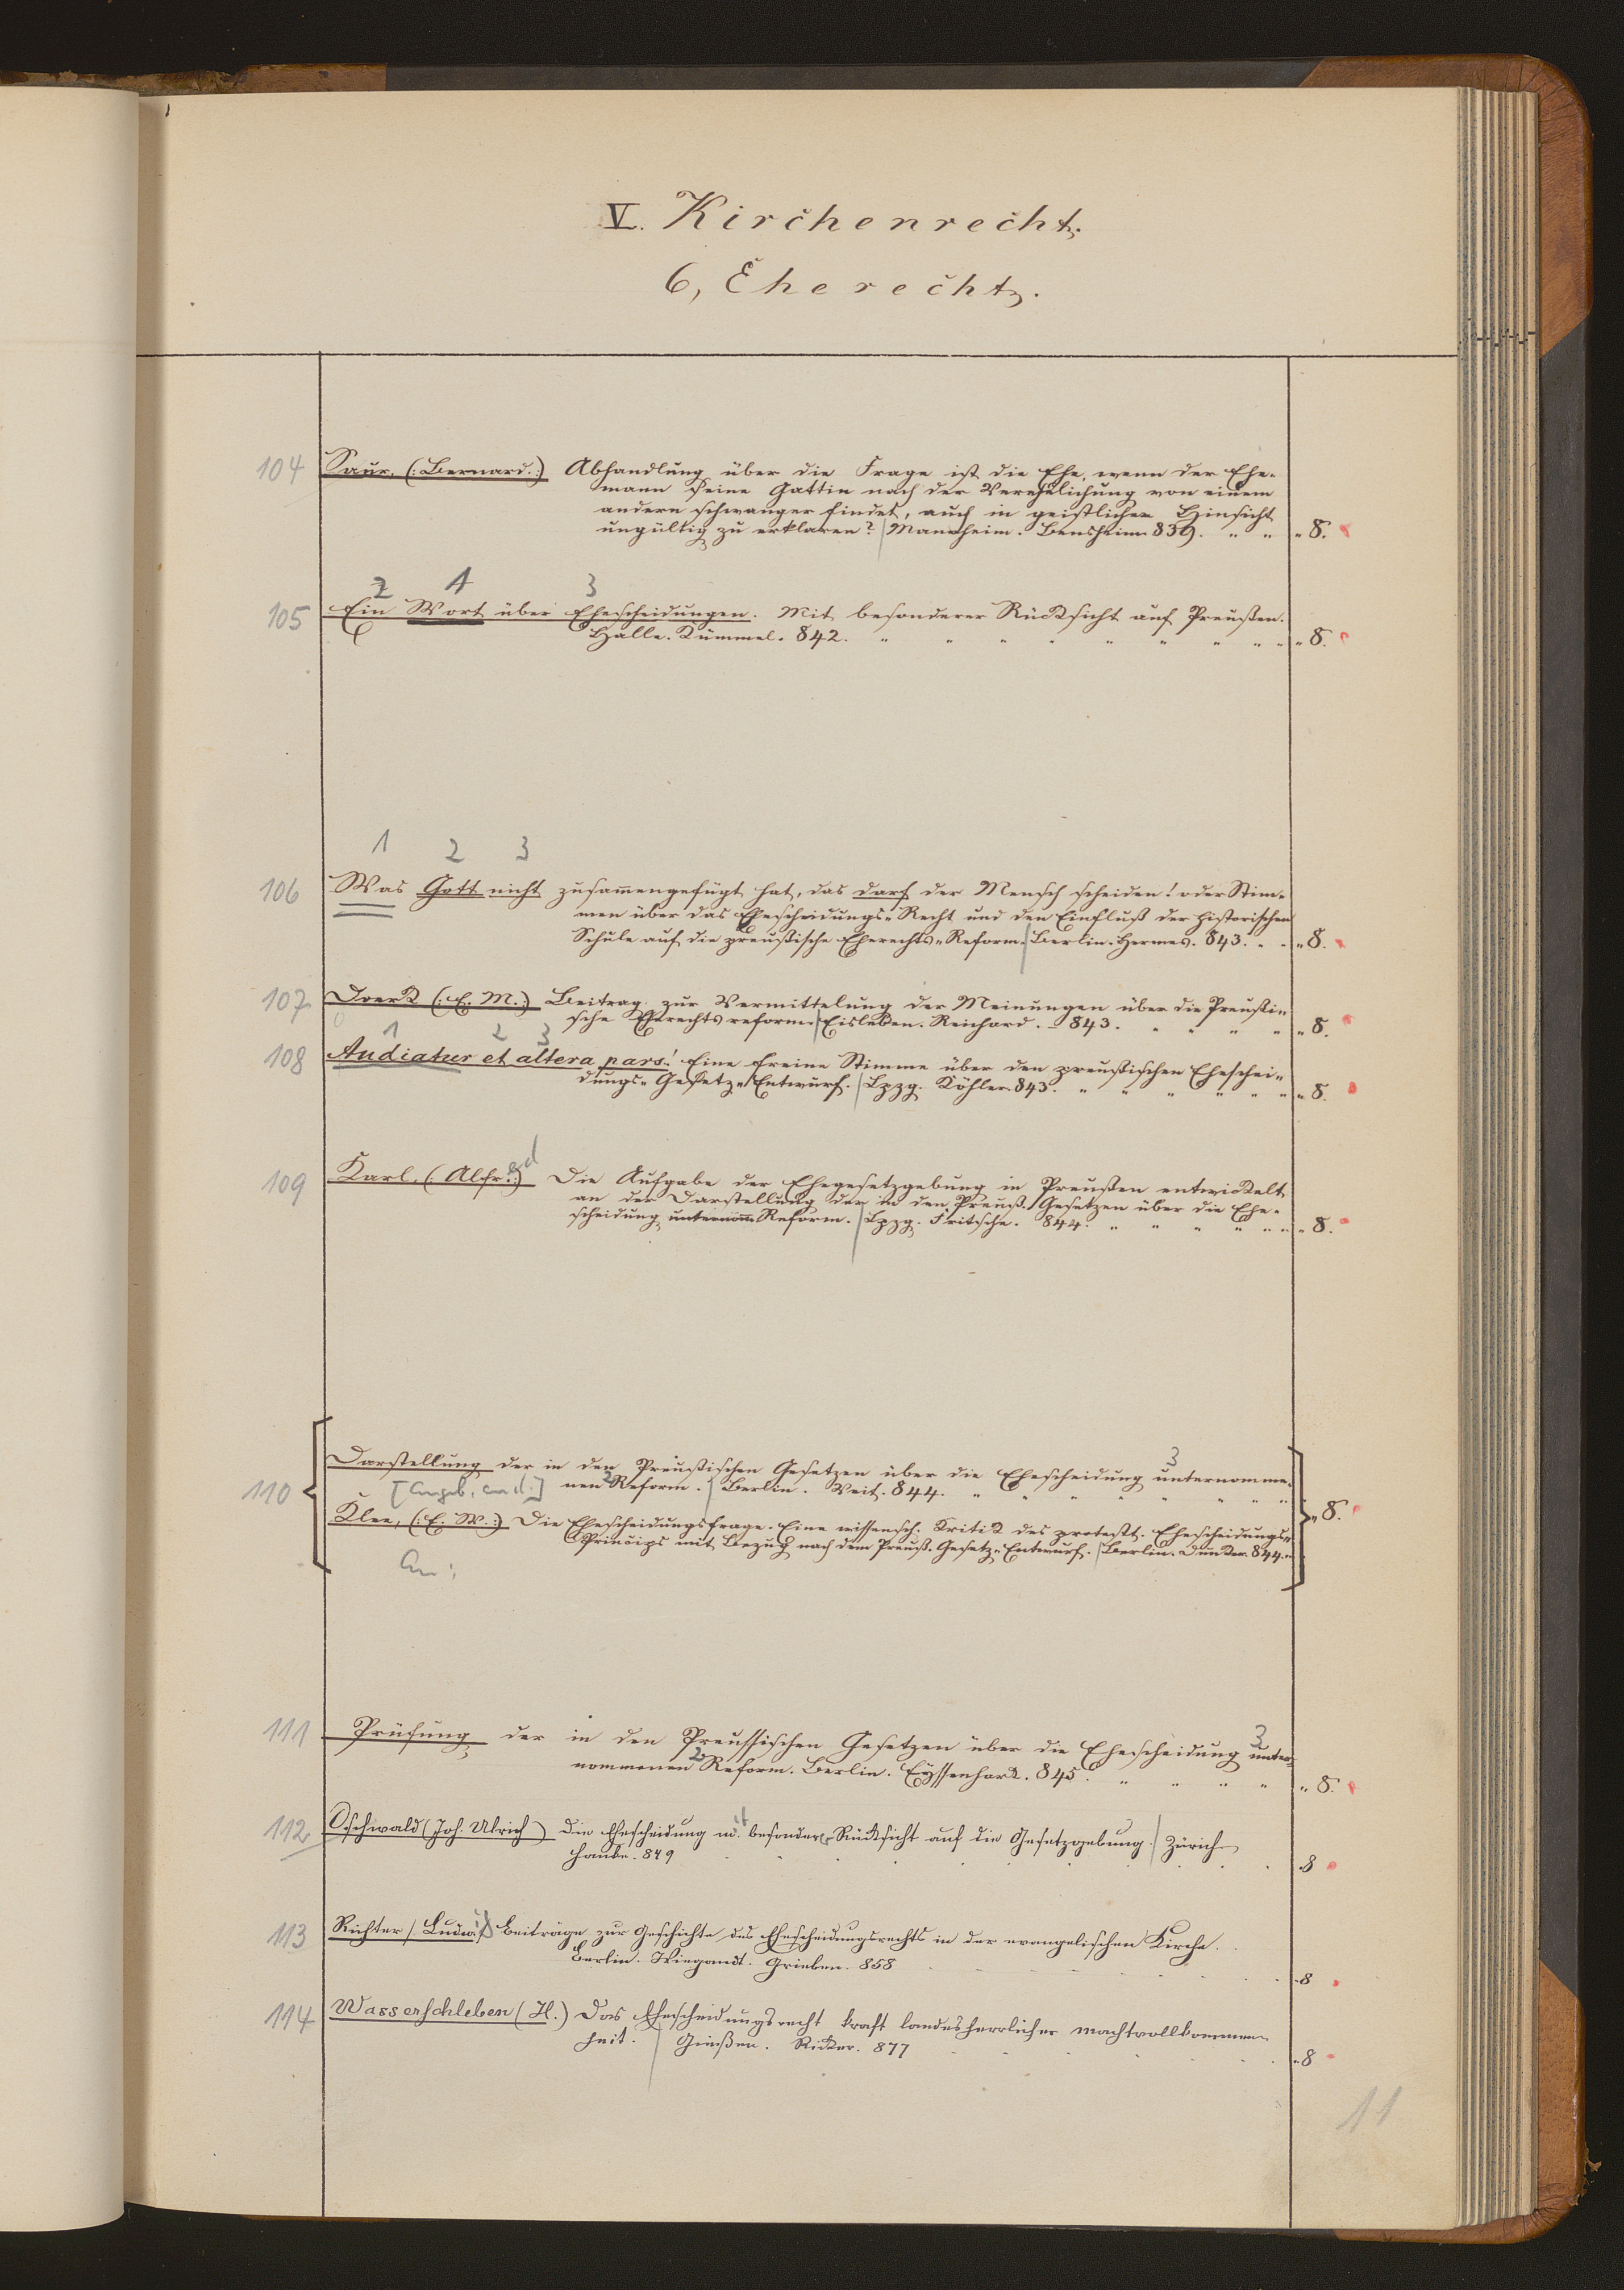 V. Kirchenrecht.
6, Eherecht.
104 Saur, (: Bernard. :) Abhandlung über die Frage ist die Ehe, wenn der Ehe-
mann seine Gattin nach der Verehelichung von einem
andern schwanger findet, auch in geistlicher Hinsicht
ungültig zu erklaren? Mannheim. Bensheimer 839. " " " 8.
2 1 3
105 Ein Wort über Ehescheidungen. Mit besonderer Rücksicht auf Preußen.
Halle. Kümmel. 842. " " " " " " " " " " 8.
1 2 3
106 Was Gott nicht zusam̄engefügt hat, das darf der Mensch scheiden! oder Stim-
men über das Ehescheidungs-Recht und den Einfluß der historischen
Schule auf die preußische Eherechts-Reform. Berlin. Hermes. 843. " " " 8.
107 Doerk (: E. M. :) Beitrag zur Vermittelung der Meinungen über die Preußi-
sche Eherechtsreform. Eisleben. Reichard. 843. " " " " " 8.
1 2 3
108 Audiatur et altera pars! Eine freie Stimme über den preußischen Eheschei-
dungs-Gesetz-Entwurf. Lpzg. Köhler. 843. " " " " " " " 8.
109 Karl, (Alfr.ed) Die Aufgabe der Ehegesetzgebung in Preußen entwickelt
an der Darstellung der in den Preuß. Gesetzen über die Ehe-
scheidung unternom̄. Reform. Lpzg. Fritsche. 844. " " " " " " " 8.
3
110 Darstellung der in den Preußischen Gesetzen über die Ehescheidung unternomme-
nen 2 Reform. Berlin. Veit. 844. " " " " " " " "
Klee, (: E. W. :) Die Ehescheidungsfrage. Eine wissensch. Kritik des protest. Ehescheidungs- " 8.
Princips mit Bezug nach dem Preuß. Gesetz-Entwurf. Berlin. Duncker. 844.
An:
3
111 Prüfung der in den Preussischen Gesetzen über die Ehescheidung unter-
nommenen 2 Reform. Berlin. Eyssenhardt. 845. " " " " " 8.
112 Oschwald (Joh. Ulrich) Die Ehescheidung m.it besonderer Rücksicht auf die Gesetzgebung. Zürich
Hanke. 849 " 8
113 Richter / Ludw.ig / Beiträge zur Geschichte des Ehescheidungsrechts in der evangelischen Kirche.
Berlin. Wiegandt. Grieben. 858 " 8
114 Wasserschleben (H.) Das Ehescheidungsrecht kraft landesherrlicher Machtvollkommen-
heit. Gießen. Ricker. 877 " 8
11